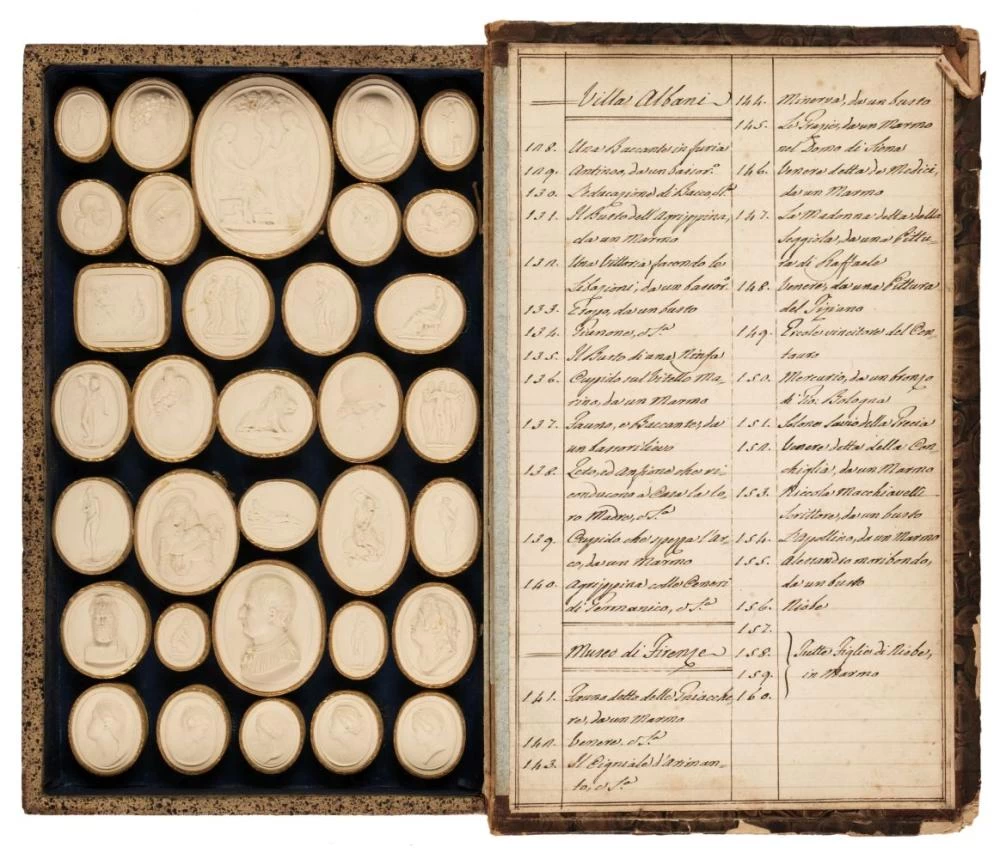 Villa Albani
128. Una Baccante in furia
129. Antinoo, da un bassor.º
130. L'educazione di Bacco, d.º
131. Il Busto dell'Agrippina,
da un Marmo
132. Una Vittoria facendo le
Libazioni, da un bassor.º
133. Esopo, da un busto
134. Giunone, d.º
135. Il Busto di una Ninfa
136. Cupido sul Vitello Ma-
rino, da un Marmo
137. Fauno, e Baccante, da
un bassorilievo
138. Zeto, ed Anfione che ri-
conducono a Casa la lo-
ro Madre, d.º
139. Cupido che spezza l'ar-
co, da un Marmo
140. Agrippina colle Ceneri
di Germanico, d.º
Museo di Firenze
141. Fauno detto delle Gnacche-
re, da un Marmo
142. Venere, d.º
143. Il Cignale d'Ariman-
to, d.º
144. Minerva, da un busto
145. Le Grazie, da un Marmo
nel Domo di Siena
146. Venere detta de Medici,
da un Marmo
147. La Madonna detta della
Seggiola, da una Pittu-
ra di Raffaele
148. Venere, da una Pittura
del Tiziano
149. Ercole vincitore del Cen-
tauro
150. Mercurio, da un bronzo
di Gio: Bologna
151. Solone Savio della Grecia
152. Venere detta della Con-
chiglia, da un Marmo
153. Niccola Macchiavelli
Scrittore, da un busto
154. L'Apollino, da un Marmo
155. Alessandro moribondo,
da un busto
156. Niobe
157.
158. Quattro Figlie di Niobe,
159. in Marmo
160.